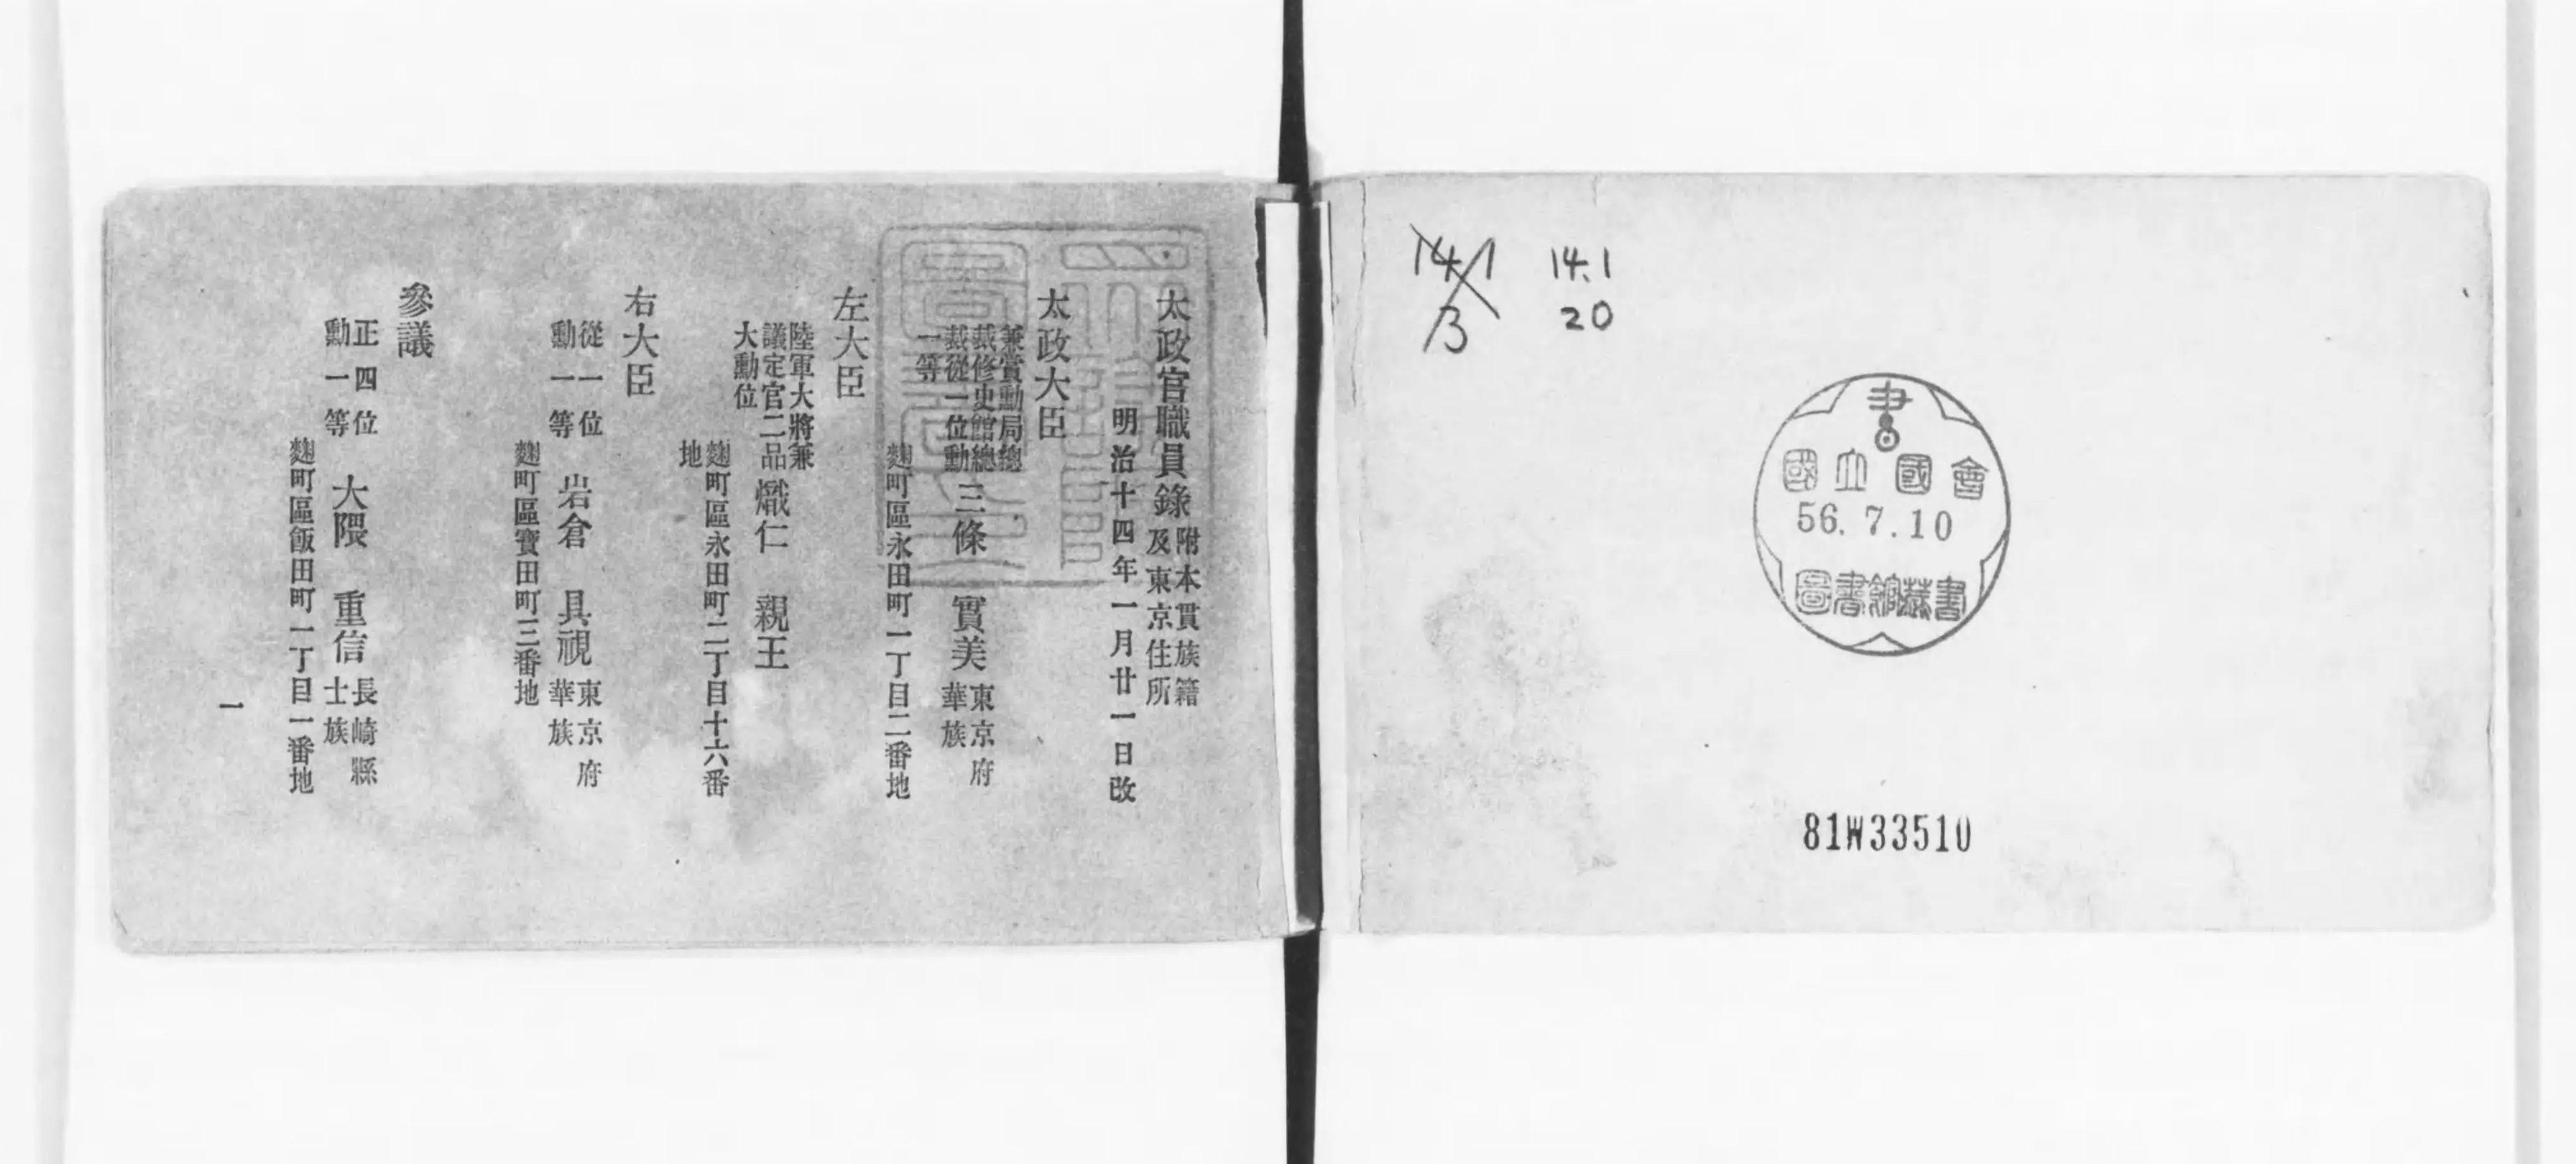 14.1
13
14.1
20
國立國會
56.7.10
圖書館藏書
81W33510
太政官職員錄 附本貫族籍
及東京住所
明治十四年一月廿一日改
太政大臣
兼賞勳局總
裁修史館總
裁從一位勳
一等
三條 實美 東京府
華族
麹町區永田町一丁目二番地
左大臣
陸軍大將兼
議定官二品
大勳位
熾仁 親王
麹町區永田町二丁目十六番
地
右大臣
從一位
勳一等
岩倉 具視 東京府
華族
麹町區寶田町三番地
參議
正四位
勳一等
大隈 重信 長崎縣
士族
麹町區飯田町一丁目一番地
一